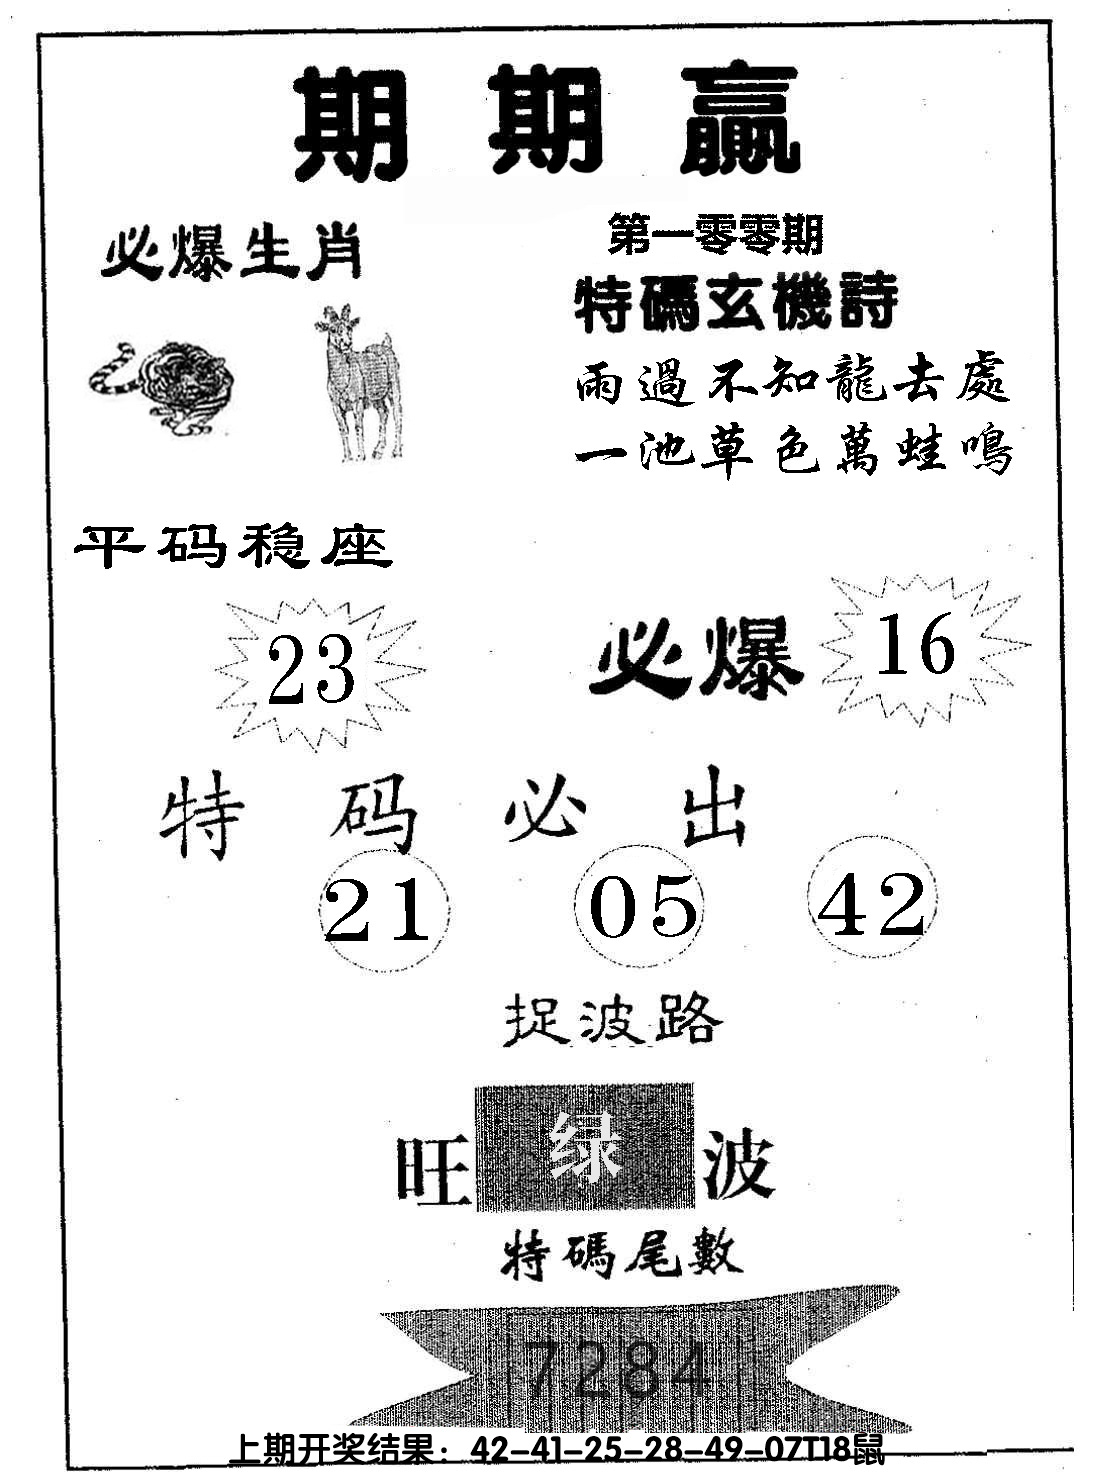 期期赢
必爆生肖
第一零零期
特碼玄機詩
雨過不知龍去處
一池草色萬蛙鳴
平码稳座
23
必爆 16
特码必出
21 05 42
捉波路
旺 绿 波
特碼尾數
7284
上期开奖结果：42-41-25-28-49-07T18鼠